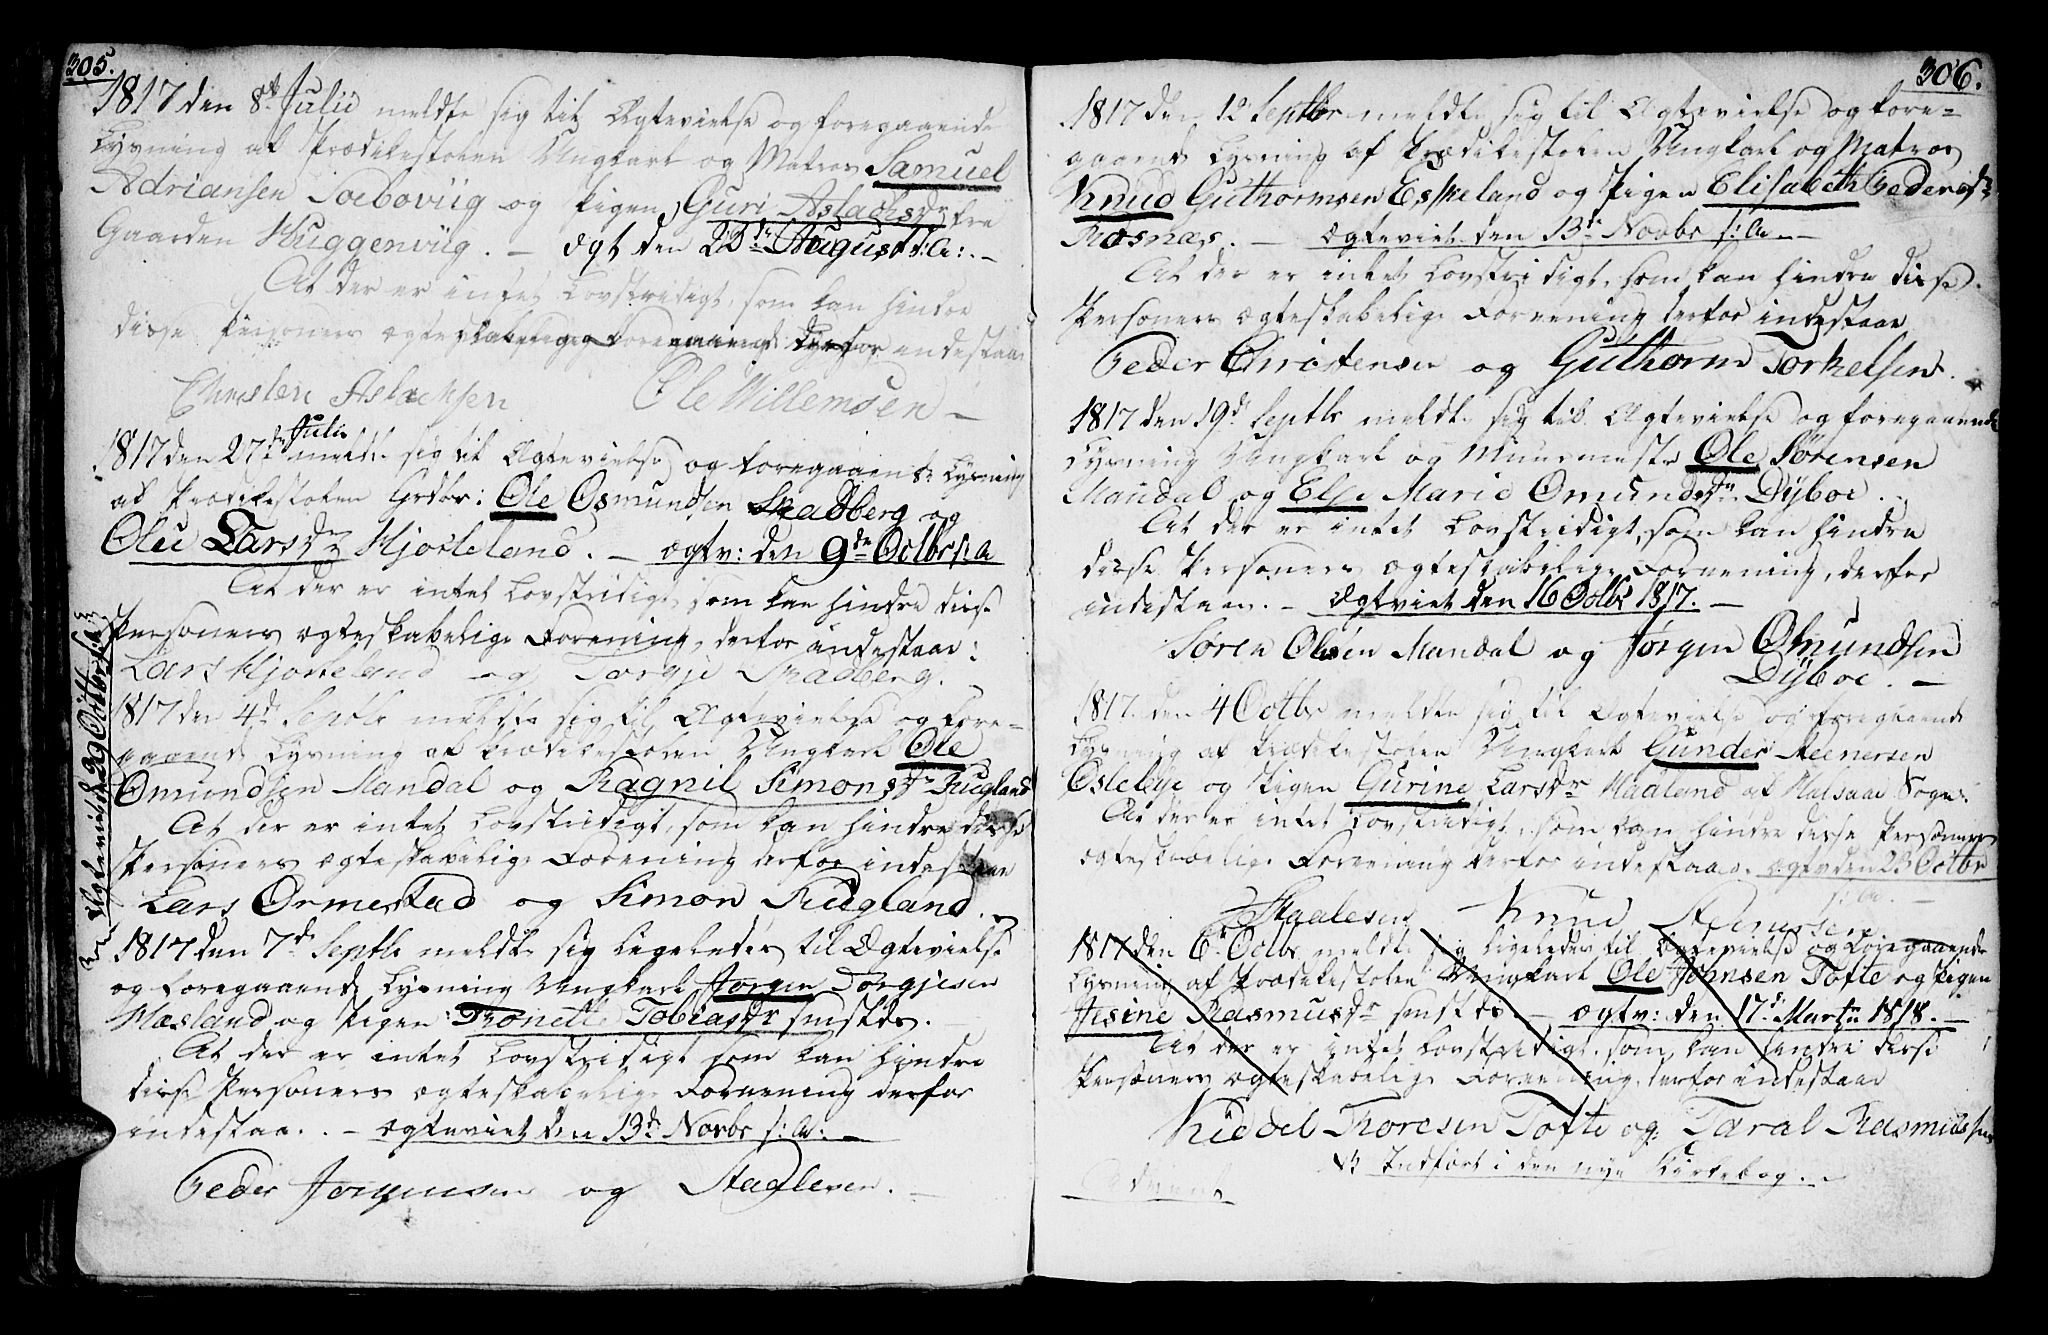 305.
1817 den 8de Julii meldte sig til Ægtevielse og foregaaende
Lysning af Prædikestolen Ungkarl og Matros Samuel
Adriansen Soeboviig og Pigen Guri Aslachsdr fra
Gaarden Huggenviig. – Ægt den 28de August s: A: –
At der er intet Lovstridigt, som kan hindre
disse Personers ægteskabelige Foreening derfor indestaae
Christen Aslachsen Ole Willemsen –
1817 den 27de Julii meldte sig til Ægtevielse og foregaaende Lysning
af Prædikestolen Ole Osmundsen Skadberg og
Olu Larsdr Hjorteland. – ægtv: den 9de Octbr s: A
At der er intet Lovstridigt, som kan hindre disse
Personers ægteskabelige Forening, derfor indestaae:
Lars Hjorteland og Torgje Skadberg.
1817 den 4de Septbr meldte sig til Ægtevielse og fore-
gaaende Lysning af Prædikestolen Ungkarl Ole
Omundsen Mandal og Ragnil Simonsdr Rugland
At der er intet Lovstridigt, som kan hindre disse
Personers ægteskabelige Forening derfor indestaae
Lars Ormestad og Simon Rugland.
Ægteviede 29 Octbr s: A
1817 den 7de Septbr meldte sig ligeledes til Ægtevielse
og foregaaende Lysning Ungkarl Jørgen Torgjesen
Mæsland og Pigen Tronette Tobiasdr smstds. –
At der er intet Lovstridigt som kan hindre
disse Personers ægteskabelige Foreening derfor
indestaae. – ægteviet den 13de Novbr s: A: –
Peder Jørgensen og Staalesen. –
306.
1817 den 12 Septbr meldte sig til Ægtevielse og fore-
gaaende Lysning af Prædikestolen Ungkarl og Matros
Knud Guthormsen Eskeland og Pigen Elisabeth Pedersdr
Rosnæs. – Ægteviet den 13de Novbr s: A –
At der er intet Lovstridigt, som kan hindre disse
Personers ægteskabelige Foreening derfor indestaae
Peder Christensen og Guthorm Torkelsen.
1817 den 19de Septbr meldte sig til Ægtevielse og foregaaende
Lysning Ungkarl og Muurmester Ole Sørensen
Mandal og Else Marie Omundsdtr. Dyboe. –
At der er intet Lovstridigt, som kan hindre
disse Personers ægteskabelige Foreening, derfor
indestaae. – Ægteviet den 16 Octbr 1817. –
Søren Olsen Mandal og Jørgen Omundsen
Dyboe. –
1817 den 4 Octbr meldte sig til Ægtevielse og foregaaende
Lysning af Prædikestolen Ungkarl Gunder Steenersen
Osleby og Pigen Gurine Larsdr Haaland af Halsaae Sogn.
At der er intet Lovstridigt, som kan hindre disse Personers
ægteskabelige Foreening derfor indestaae. ægtv den 23 Octbr
s: A. –
Staalesen Knud Steenersen
1817 den 6te Octbr meldte sig ligeledes til Ægtevielse og foregaaende
Lysning af Prædikestolen Ungkarl Ole Johnsen Tofte og Pigen
Jesine Rasmusdr smstds. – ægtv: den 17de Martii 1818. –
At der er intet Lovstridigt, som kan hindre disse
Personers ægteskabelige Foreening, derfor indestaae
Kiddel Thoresen Tofte og Taral Rasmussen
NB Indført i den nye Kirkebog. –